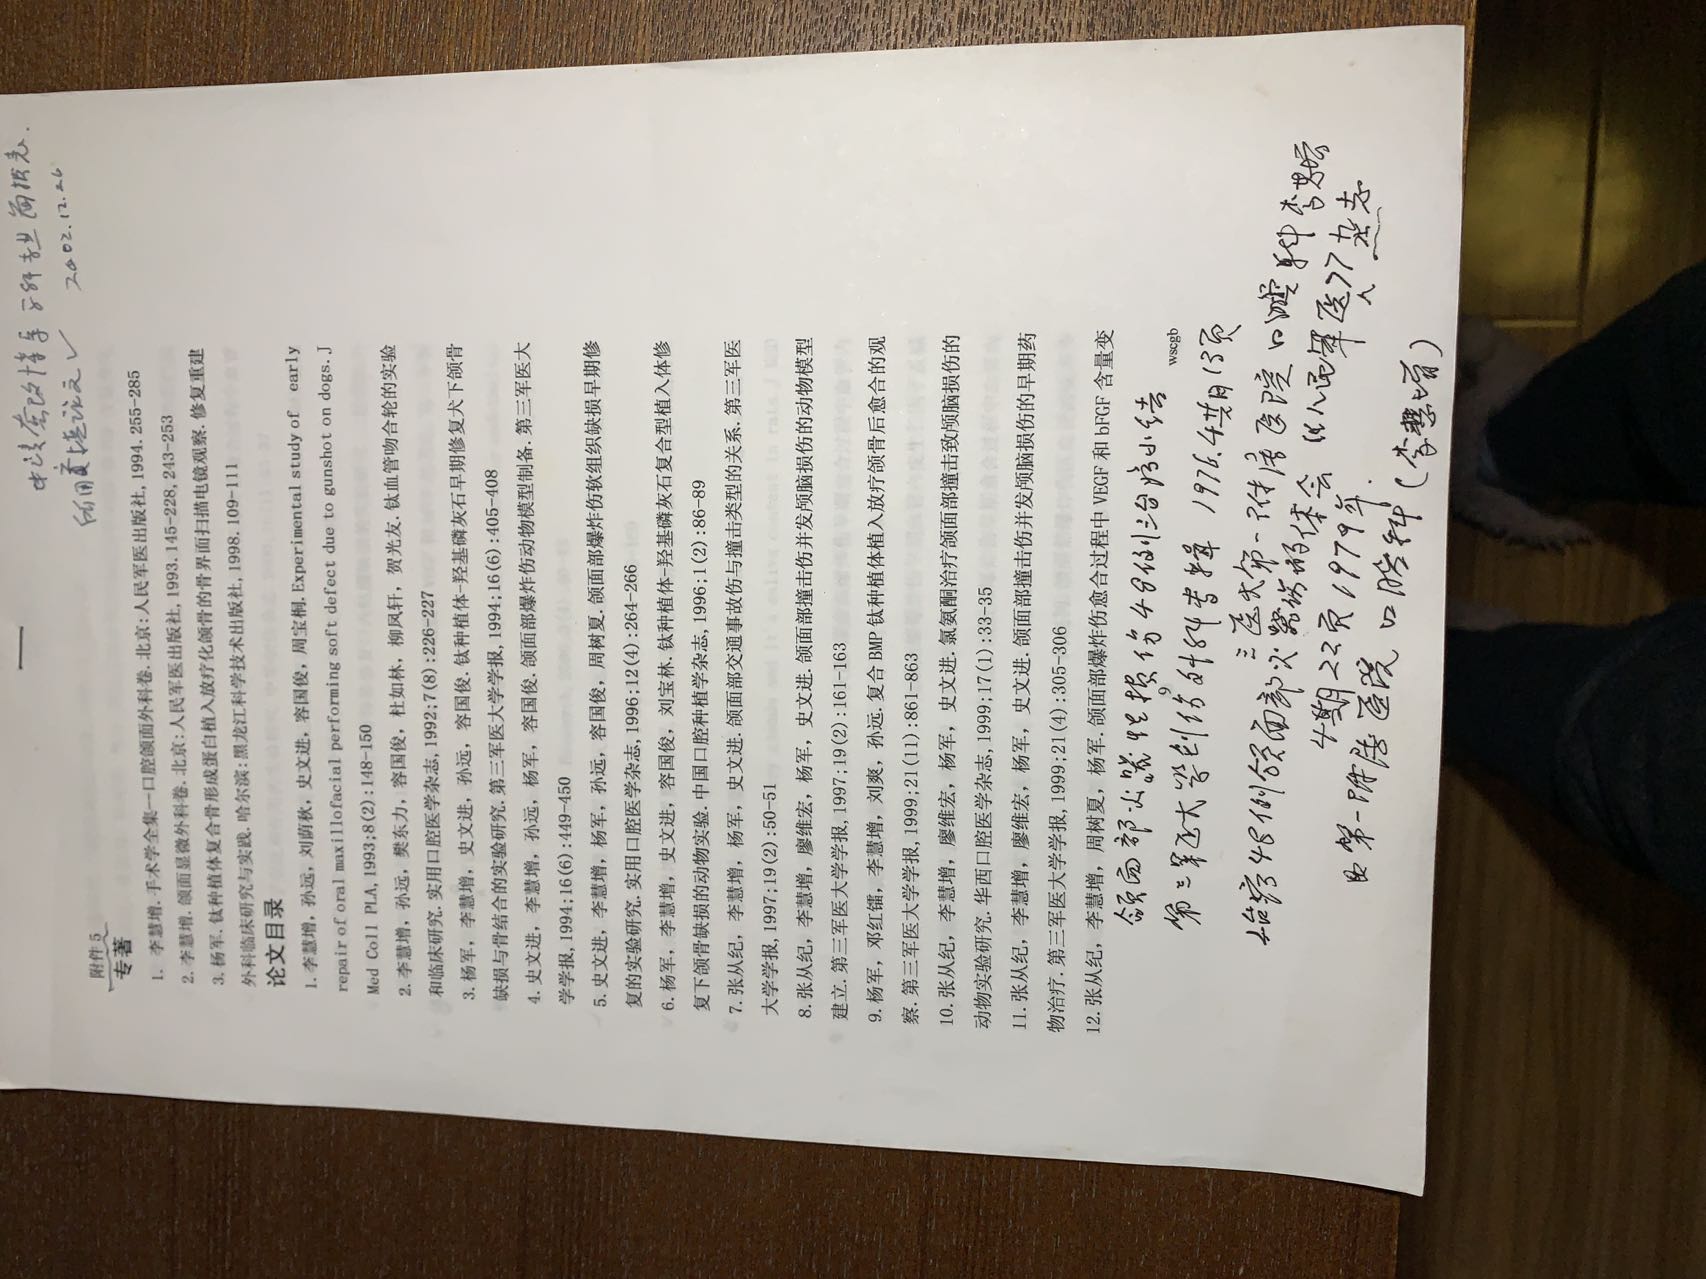 附件5
专著
1. 李慧增.手术学全集—口腔颌面外科卷.北京:人民军医出版社,1994.255-285
2. 李慧增.颌面显微外科卷.北京:人民军医出版社,1993.145-228,243-253
3. 杨军.钛种植体复合骨形成蛋白植入放疗化颌骨的骨界面扫描电镜观察.修复重建
外科临床研究与实践.哈尔滨:黑龙江科学技术出版社,1998.109-111
论文目录
1. 李慧增,孙远,刘荫秋,史文进,容国俊,周宝桐.Experimental study of early
repair of oral maxillofacial performing soft defect due to gunshot on dogs.J
Med Coll PLA,1993;8(2):148-150
2. 李慧增,孙远,樊东力,容国俊,杜如林,柳凤轩,贺光友.钛血管吻合轮的实验
和临床研究.实用口腔医学杂志,1992;7(8):226-227
3. 杨军,李慧增,史文进,孙远,容国俊.钛种植体-羟基磷灰石早期修复犬下颌骨
缺损与骨结合的实验研究.第三军医大学学报,1994;16(6):405-408
4. 史文进,李慧增,孙远,杨军,容国俊.颌面部爆炸伤动物模型制备.第三军医大
学学报,1994;16(6):449-450
5. 史文进,李慧增,杨军,孙远,容国俊,周树夏.颌面部爆炸伤软组织缺损早期修
复的实验研究.实用口腔医学杂志,1996;12(4):264-266
6. 杨军,李慧增,史文进,容国俊,刘宝林.钛种植体-羟基磷灰石复合型植入体修
复下颌骨缺损的动物实验.中国口腔种植学杂志,1996;1(2):86-89
7. 张从纪,李慧增,杨军,史文进.颌面部交通事故伤与撞击类型的关系.第三军医
大学学报,1997;19(2):50-51
8. 张从纪,李慧增,廖维宏,杨军,史文进.颌面部撞击伤并发颅脑损伤的动物模型
建立.第三军医大学学报,1997;19(2):161-163
9. 杨军,邓红镭,李慧增,刘爽,孙远.复合BMP钛种植体植入放疗颌骨后愈合的观
察.第三军医大学学报,1999;21(11):861-863
10.张从纪,李慧增,廖维宏,杨军,史文进.氯氨酮治疗颌面部撞击致颅脑损伤的
动物实验研究.华西口腔医学杂志,1999;17(1):33-35
11.张从纪,李慧增,廖维宏,杨军,史文进.颌面部撞击伤并发颅脑损伤的早期药
物治疗.第三军医大学学报,1999;21(4):305-306
12.张从纪,李慧增,周树夏,杨军.颌面部爆炸伤愈合过程中VEGF和bFGF含量变
wscgb
9
2002.12.26
颌面部火器性损伤48例治疗小结
第三军医大学创伤专辑 13页
治疗48例颌面部火器伤的体会
三医大第一附属医院口腔科
人民军医杂志
4期22页1979年.
第一附属医院口腔科(李慧增)